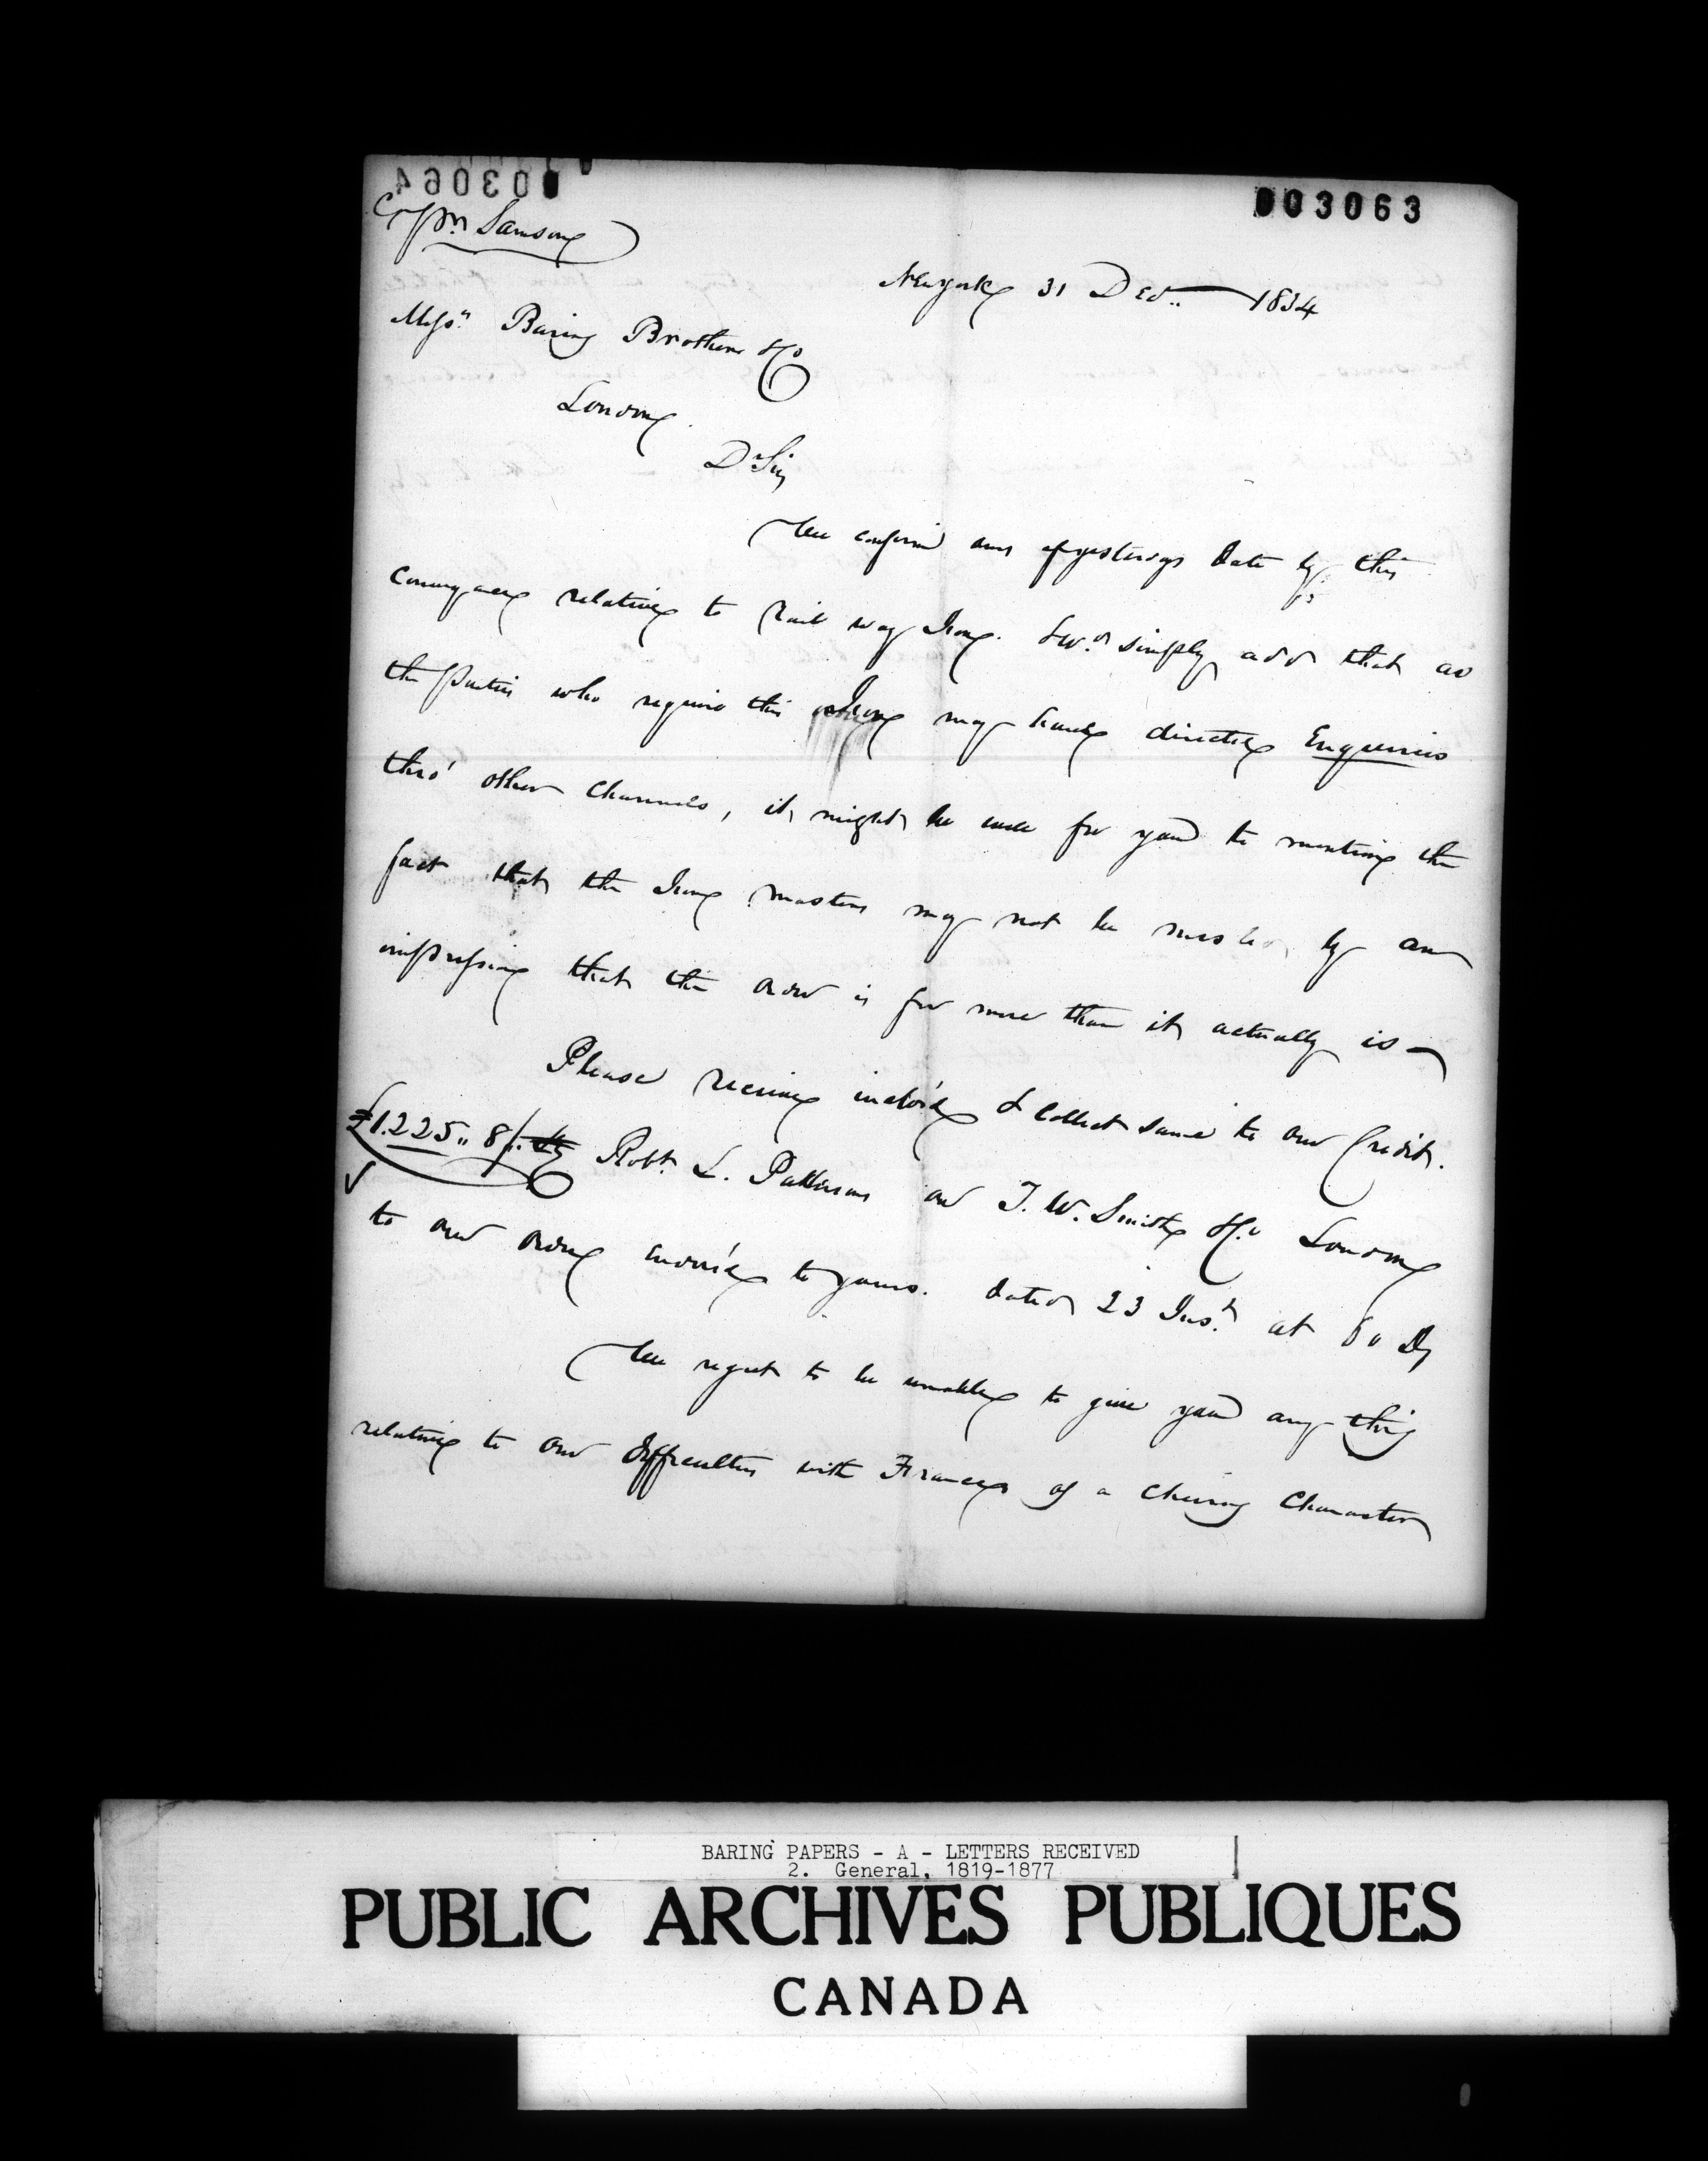 003064
003063
Copy pr Samson
New York 31 Decr. 1834
Messrs. Baring Brothers & Co
London.
Dr Sirs
We confirm ours of yesterdays date by this
conveyance relative to Rail way Iron. & wd. simply add that as
the parties who require this Iron may have directed Enqueries
thro' other Channels, it might be well for you to mention the
fact that the Iron masters may not be misled by an
impression that the order is for more than it actually is —
Please receive inclos'd & Collect same to our Credit.
£1.225.. 8/. Robt. L. Patterson on T. W. Smith & Co London
to our order endors'd to yours. dated 23 Inst. at 60 Ds
We regret to be unable to give you any thing
relative to our difficulties with France of a cheering Character
BARING PAPERS - A - LETTERS RECEIVED
2. General, 1819-1877
PUBLIC ARCHIVES PUBLIQUES
CANADA